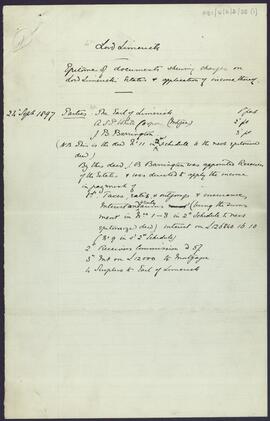 Lord Limerick
Epitome of documents shewing charges on
Lord Limericks Estates & application of income thereof
24 Sept 1897 Parties The Earl of Limerick 1st pt
2nd pt
J B Barrington 3rd pt
(NB This is the deed No 11 in 2nd Schedule to the next epitomised
deed)
By this deed J B Barrington was appointed Receiver
of the Estates & was directed to apply the income
in payment of
1st Taxes, rates & outgoings & insurance,
Interest (being the
in Nos 1–8 in 2nd Schedule to next
epitomized deed) interest on £126840.16.10
(No 9 in sd 2nd Schedule)
2nd Receivers Commission
3rd Int on £12000 to Mortgagee
4 Surplus to Earl of Limerick